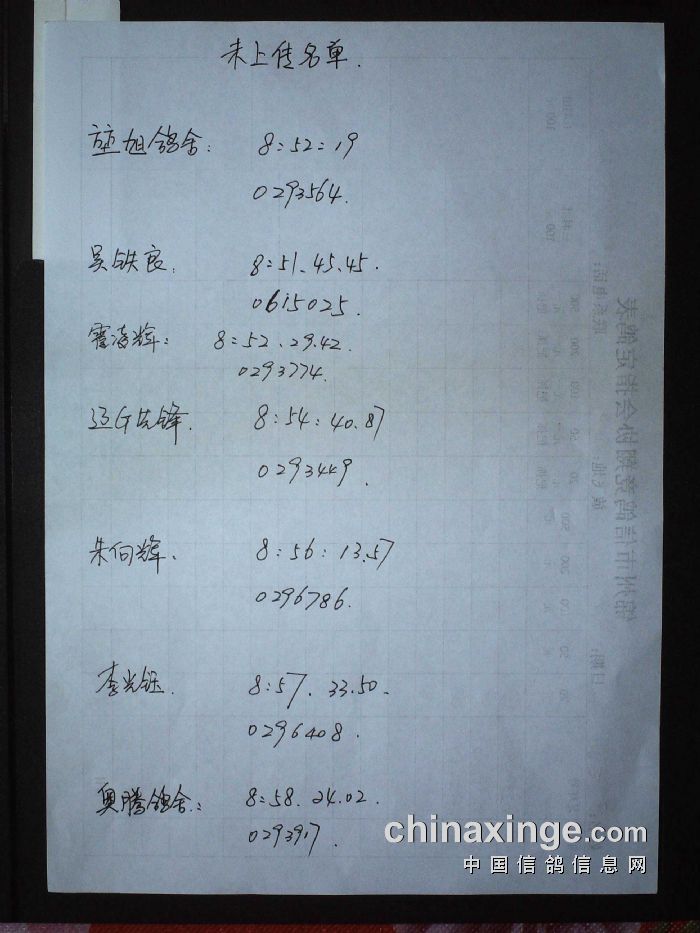 未上传名单.
旭鸽舍: 8:52:19
0293564.
吴铁良. 8:51.45.45.
0615025.
霍凌辉: 8:52.29.42.
0293774.
先锋. 8:54:40.87
0293449.
朱向辉. 8:56:13.57
0296786.
李光钰. 8:57.33.50.
0296408.
奥腾鸽舍: 8:58.24.02.
0293917.
chinaxinge.com
中国信鸽信息网